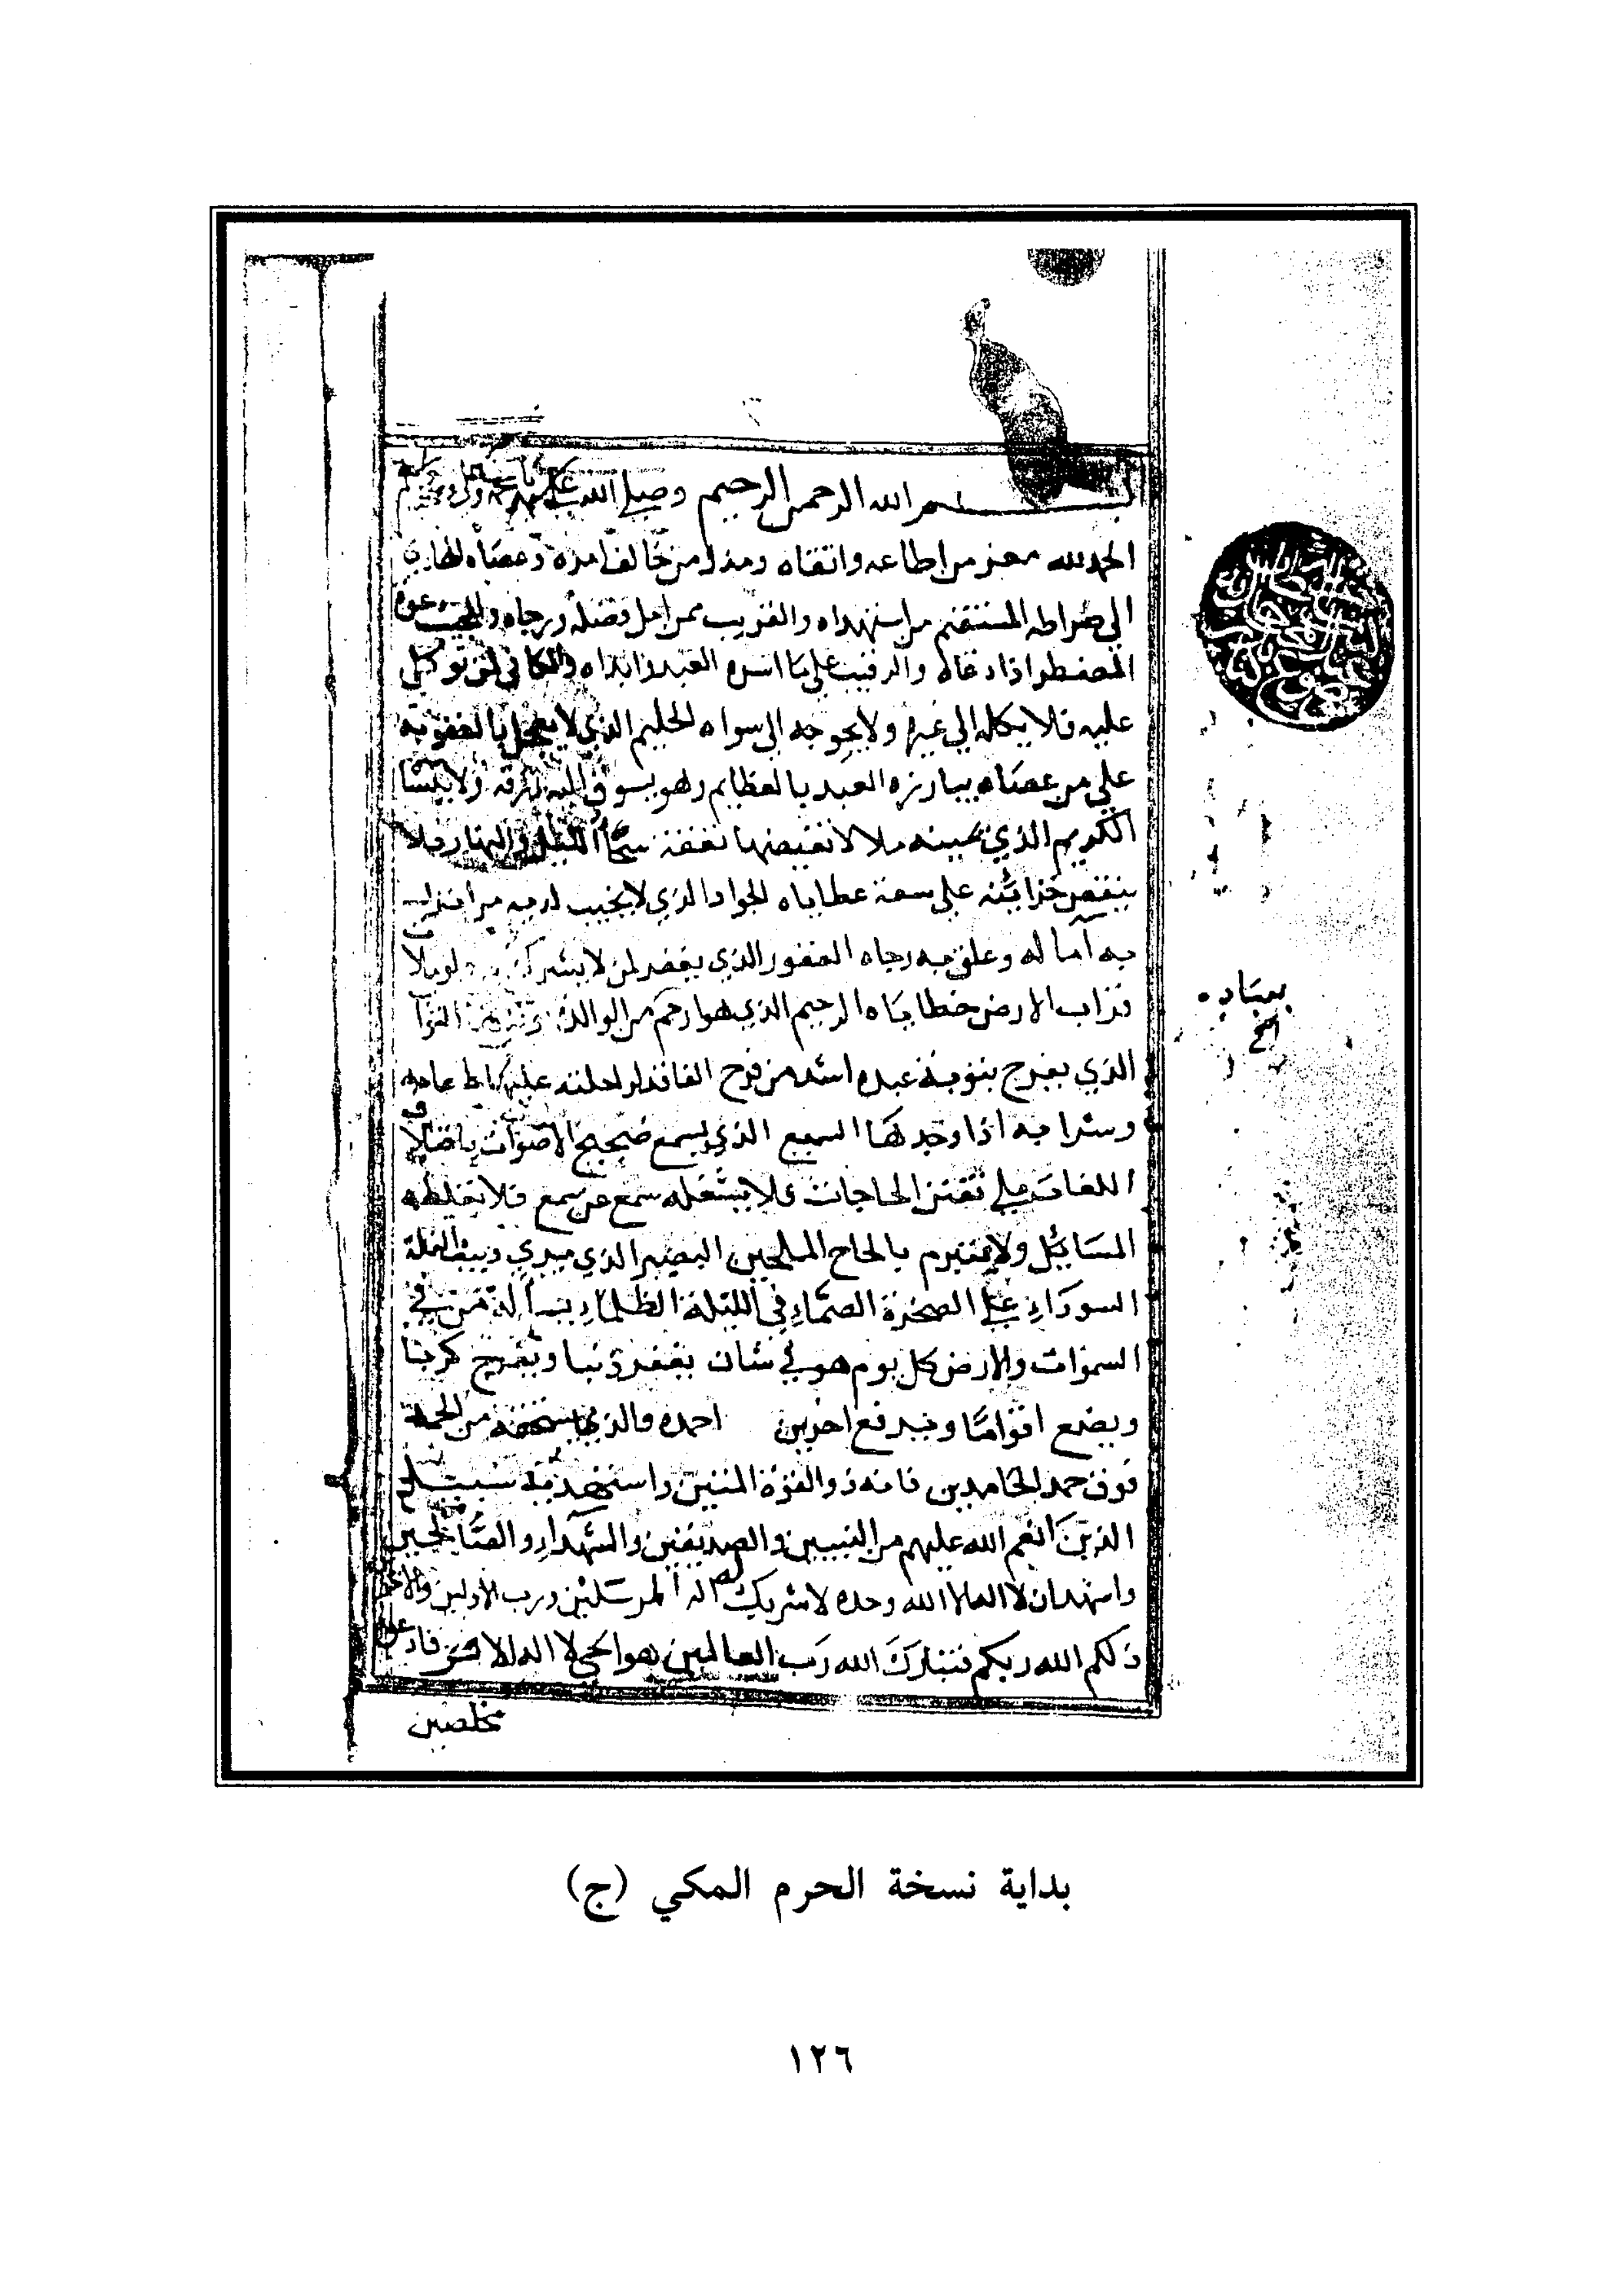 بسم الله الرحمن الرحيم وصلى الله
الحمد لله معز من اطاعه واتقاه ومذل من خالف امره وعصاه الهادي
الى صراطه المستقيم من استهداه والقريب ممن امل فضله ورجاه والمجيب دعوة
المضطر اذا دعاه والرقيب على ما اسره العبد وابداه والكافي لمن توكل
عليه فلا يكله الى غيره ولا يحوجه الى سواه الحليم الذي لا يعجل بالعقوبة
على من عصاه يبارزه العبد بالعظايم وهو يسوق اليه رزقه ولا ينساه
الكريم الذي يمينه ملا لا تغيضها نفقة سحا الليل والنهار فلا
ينقص خزائنه على سعة عطاياه الجواد الذي لا يخيب لديه من انزل
به آماله وعلق به رجاه الغفور الذي يغفر لمن لا يشرك به ولو ملات
تراب الارض خطاياه الرحيم الذي هو ارحم من الوالدة
الذي يفرح بتوبة عبده اشد من فرح الفاقد لراحلته عليها طعامه
وشرابه اذا وجدها السميع الذي يسمع ضجيج الاصوات باختلاف
اللغات على تفنن الحاجات فلا يشغله سمع عن سمع فلا تغلطه
المسائل ولا يتبرم بالحاح الملحين البصير الذي يرى دبيب النملة
السوداء على الصخرة الصماء في الليلة الظلماء يساله من في
السموات والارض كل يوم هو في شان يغفر ذنبا ويفرج كربا
ويضع اقواما ويرفع اخرين احمده والذي يستحقه من الحمد
فوق حمد الحامدين فانه ذو القوة المتين واستهديه سبيل
الذين انعم الله عليهم من النبيين والصديقين والشهداء والصالحين
واشهد ان لا اله الا الله وحده لا شريك له اله المرسلين ورب الاولين والاخرين
ذلكم الله ربكم فتبارك الله رب العالمين هو الحي لا اله الا هو فادعوه
مخلصين
بعباده
بداية نسخة الحرم المكي (ج)
١٢٦